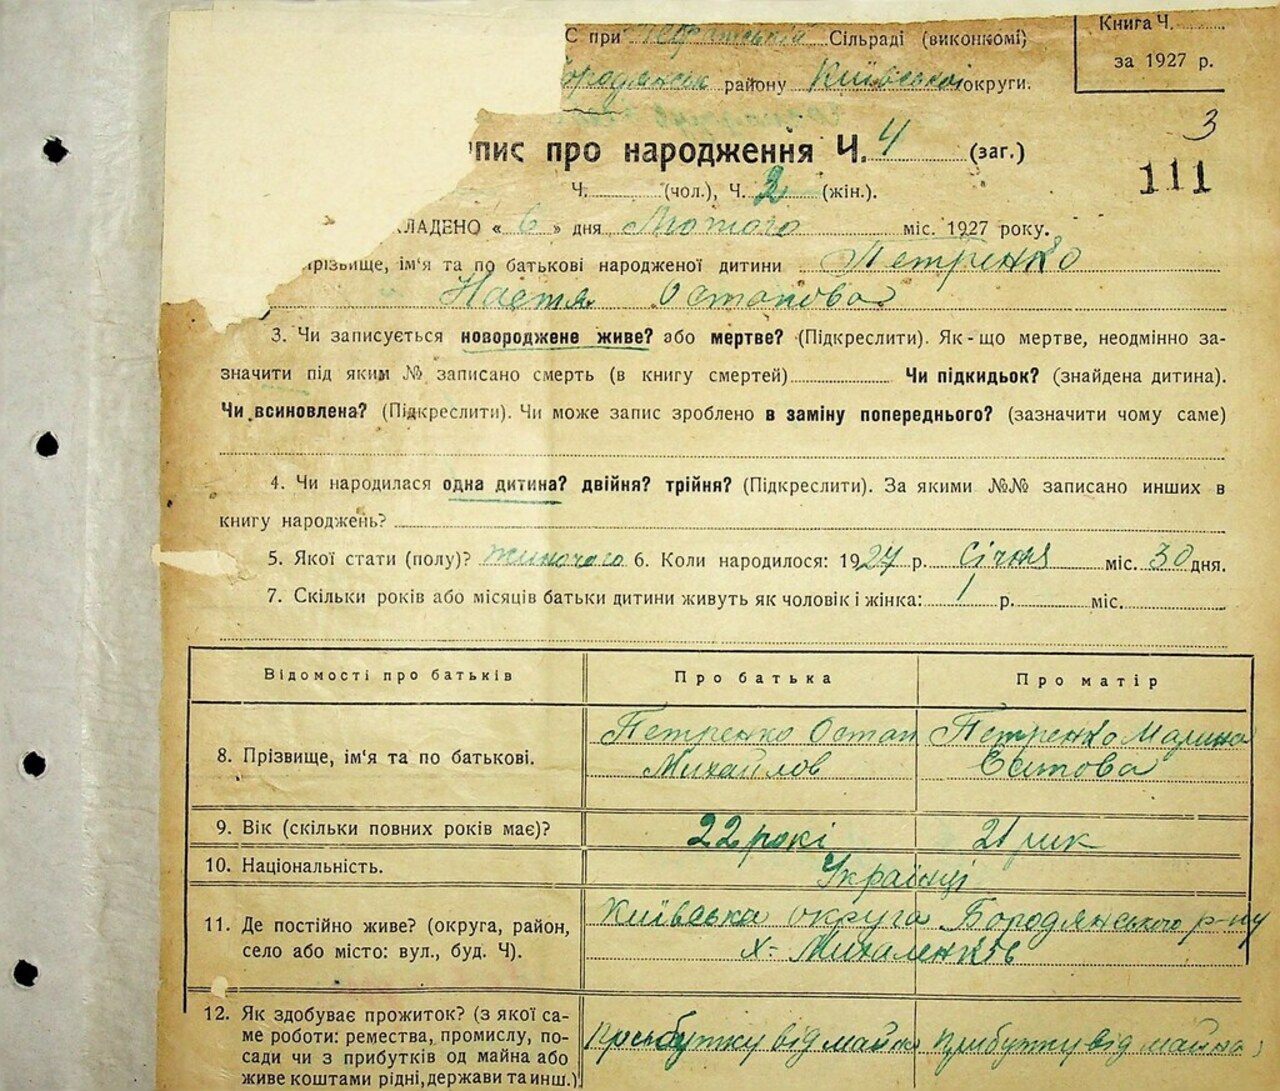 С при Сільраді (виконкомі)
Книга Ч.
за 1927 р.
Бородянськ району Київської округи.
3
111
пис про народження Ч. 4 (заг.)
Ч. (чол.), Ч. 2 (жін.).
КЛАДЕНО « 6 » дня Лютого міс. 1927 року.
прізвище, ім'я та по батькові народженої дитини Петренко
Настя Остапова
3. Чи записується новороджене живе? або мертве? (Підкреслити). Як-що мертве, неодмінно за-
значити під яким № записано смерть (в книгу смертей) Чи підкидьок? (знайдена дитина).
Чи всиновлена? (Підкреслити). Чи може запис зроблено в заміну попереднього? (зазначити чому саме)
4. Чи народилася одна дитина? двійня? трійня? (Підкреслити). За якими №№ записано инших в
книгу народжень?
5. Якої стати (полу)? жиночого 6. Коли народилося: 1927 р. Січня міс. 30 дня.
7. Скільки років або місяців батьки дитини живуть як чоловік і жінка: 1 р. міс.
Відомості про батьків Про батька Про матір
8. Прізвище, ім'я та по батькові.
Петренко Остап
Михайлов
Петренко Марина
9. Вік (скільки повних років має)? 22 рокі 21 рик
10. Національність. Українці
11. Де постійно живе? (округа, район,
село або місто: вул., буд. Ч).
Київська округа Бородянського р-ну
х. Михаленків
12. Як здобуває прожиток? (з якої са-
ме роботи: ремества, промислу, по-
сади чи з прибутків од майна або
живе коштами рідні, держави та инш.)
прыбутку від майна
прибутку від майна